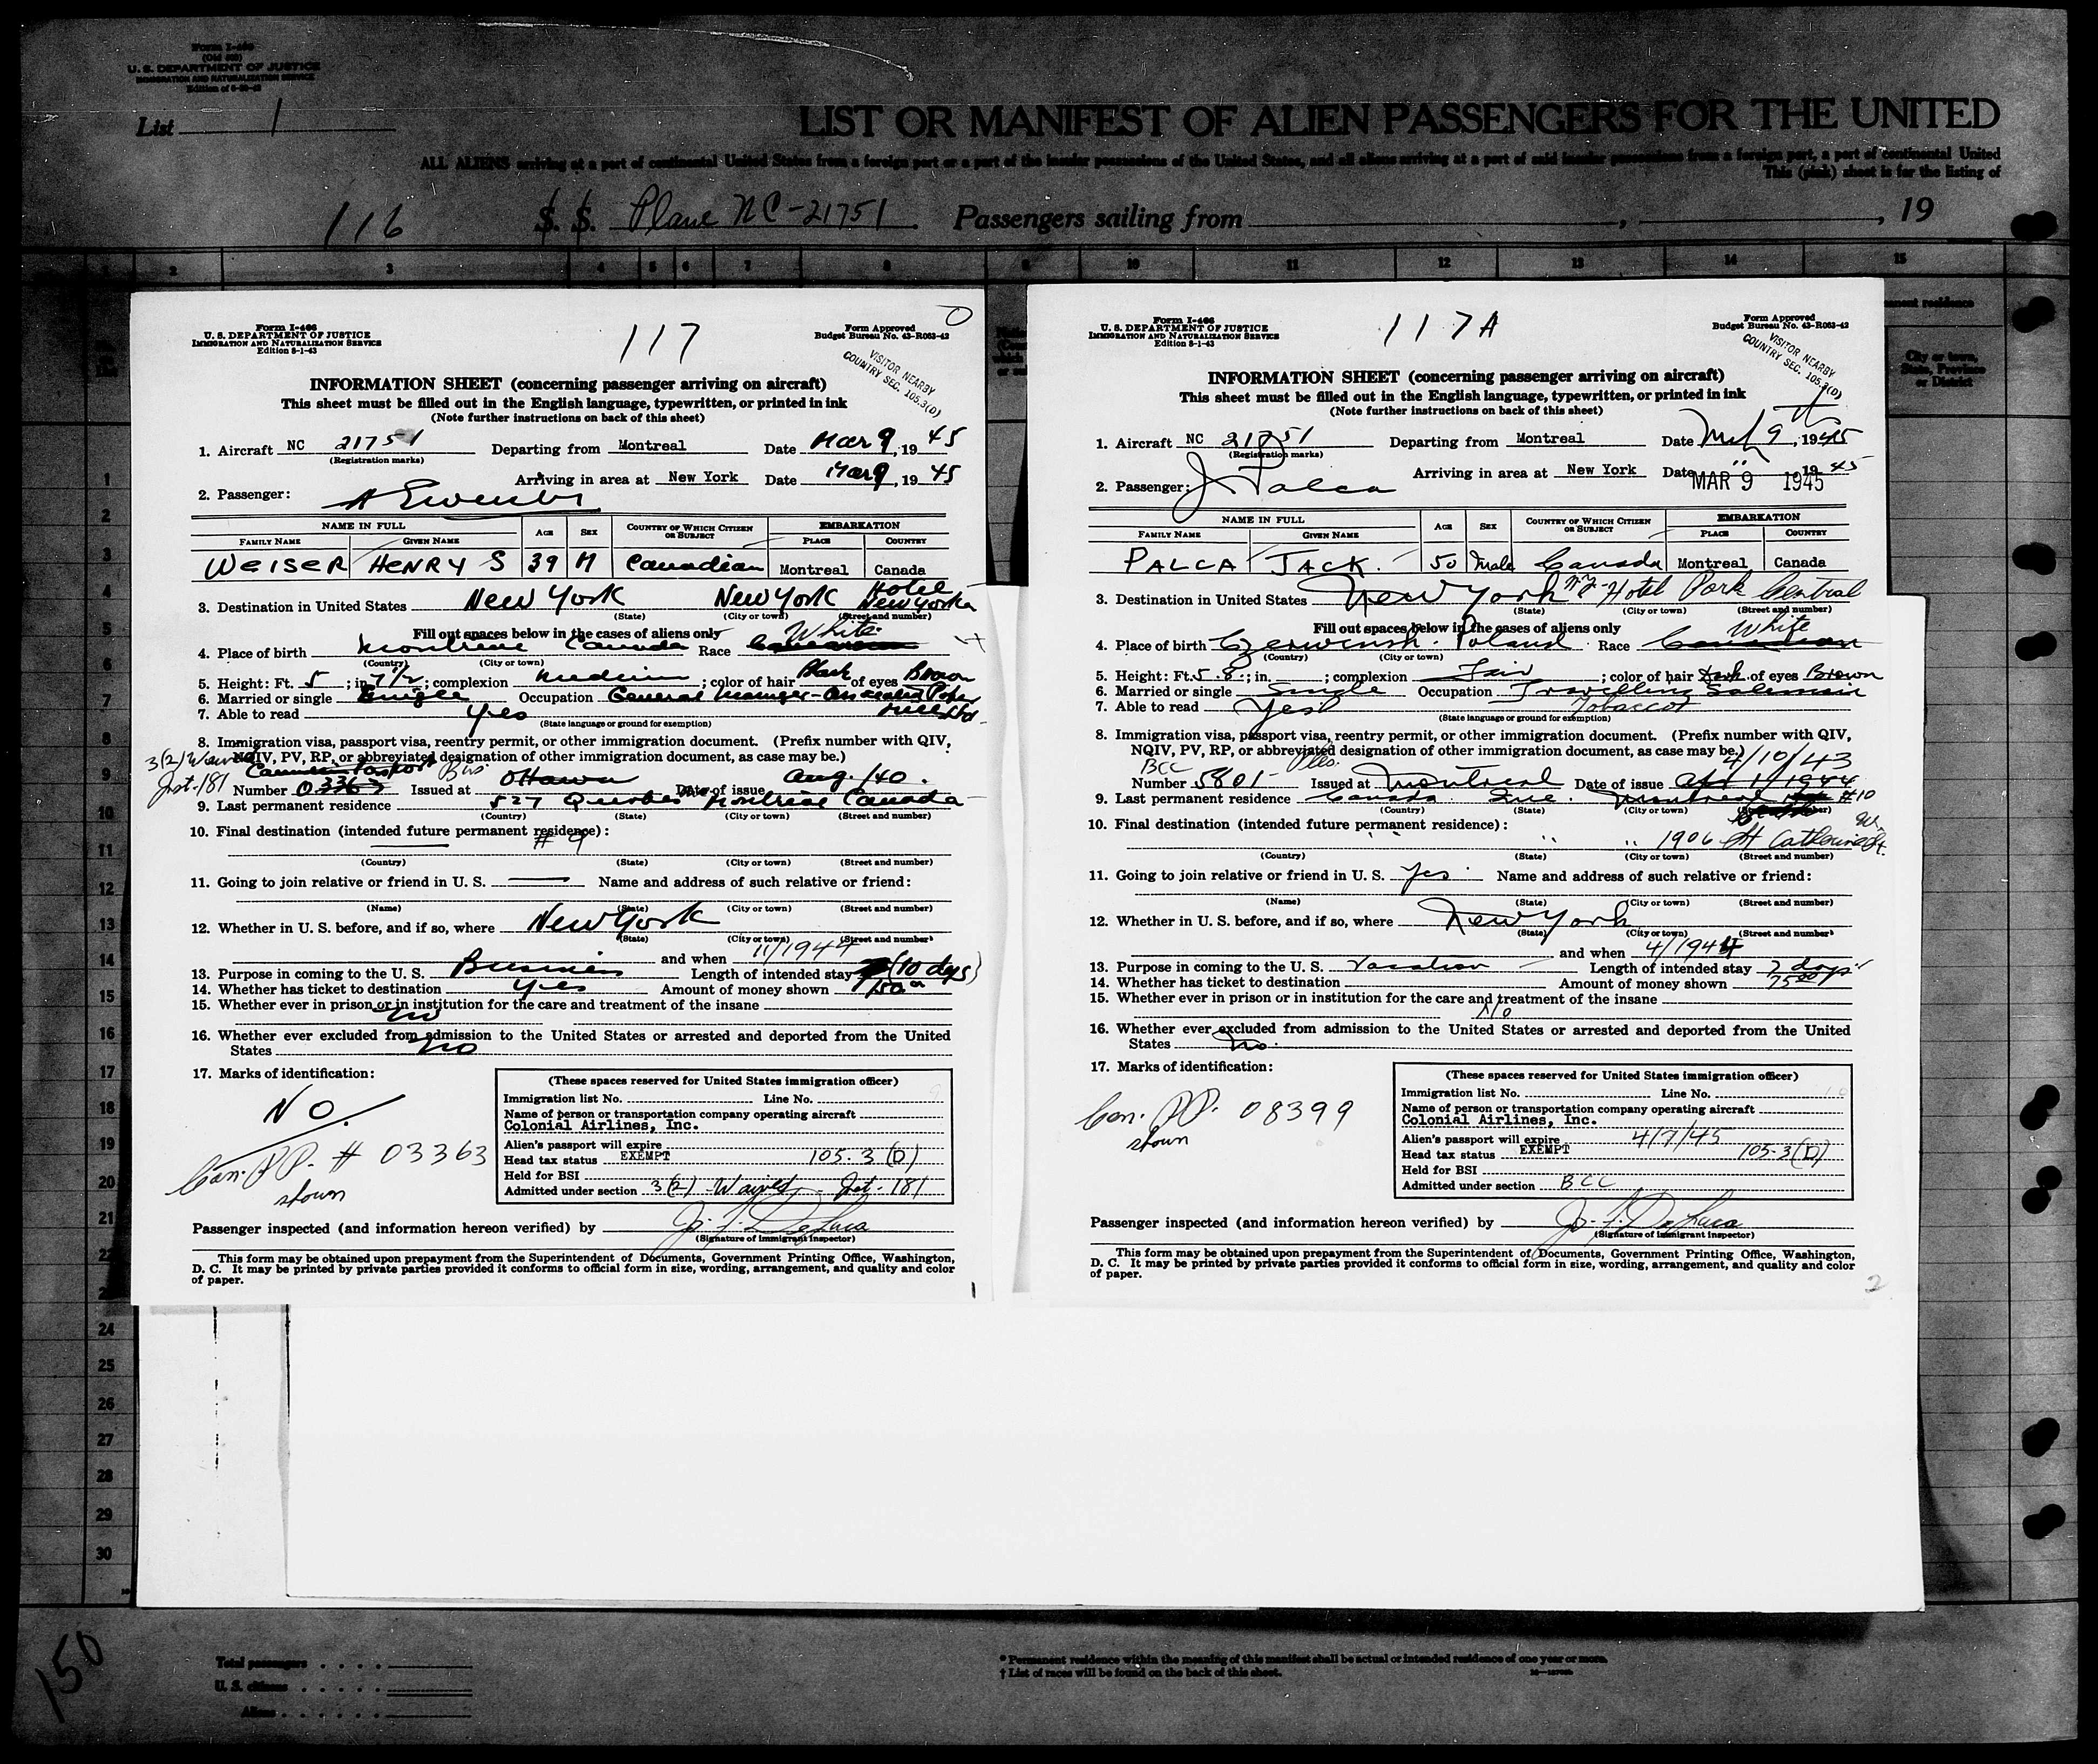 Form I-460
(Old 500)
U. S. DEPARTMENT OF JUSTICE
IMMIGRATION AND NATURALIZATION SERVICE
List 1
LIST OR MANIFEST OF ALIEN PASSENGERS FOR THE UNITED
ALL ALIENS arriving at a port of continental United States from a foreign port or a port of the insular possessions of the United States, and all aliens arriving at a port of said insular possessions from a foreign port, a port of continental United
This (pink) sheet is for the listing of
116 S. S. Plane NC-21751 Passengers sailing from , , 19
1 2 3 4 5 6 7 8 9 10 11 12 13 14 15
Form I-466
U. S. DEPARTMENT OF JUSTICE
IMMIGRATION AND NATURALIZATION SERVICE
Edition 8-1-43
117
Form Approved
Budget Bureau No. 43-R063-42
VISITOR NEARBY
COUNTRY SEC. 105.3(D)
INFORMATION SHEET (concerning passenger arriving on aircraft)
This sheet must be filled out in the English language, typewritten, or printed in ink
(Note further instructions on back of this sheet)
1. Aircraft NC 21751 Departing from Montreal Date Mar 9, 1945
(Registration marks)
Arriving in area at New York Date Mar 9, 1945
2. Passenger:
NAME IN FULL AGE SEX COUNTRY OF WHICH CITIZEN OR SUBJECT EMBARKATION
FAMILY NAME GIVEN NAME PLACE COUNTRY
WEISER HENRY S 39 M Canadian Montreal Canada
3. Destination in United States New York New York Hotel New Yorker
(State) (City or town) (Street and number)
Fill out spaces below in the cases of aliens only
4. Place of birth Montreal Canada Race White
(Country) (City or town)
5. Height: Ft. 5; in 7 1/2; complexion medium; color of hair Black of eyes Brown
6. Married or single Single Occupation General Manager-
7. Able to read yes
(State language or ground for exemption)
8. Immigration visa, passport visa, reentry permit, or other immigration document. (Prefix number with QIV,
NQIV, PV, RP, or abbreviated designation of other immigration document, as case may be.)
Number 03363 Issued at Ottawa Date of issue Aug. /40.
9. Last permanent residence 527 Querbes Montreal Canada
(Country) (State) (City or town) (Street and number)
10. Final destination (intended future permanent residence):
# 9
(Country) (State) (City or town) (Street and number)
11. Going to join relative or friend in U. S. Name and address of such relative or friend:
(Name) (State) (City or town) (Street and number)
12. Whether in U. S. before, and if so, where New York
(State) (City or town) (Street and number)
and when 11/1944
13. Purpose in coming to the U. S. Business Length of intended stay (10 days)
14. Whether has ticket to destination yes Amount of money shown
15. Whether ever in prison or in institution for the care and treatment of the insane
no
16. Whether ever excluded from admission to the United States or arrested and deported from the United
States no
17. Marks of identification:
NO
Can. PP. # 03363
shown
(These spaces reserved for United States immigration officer)
Immigration list No. Line No.
Name of person or transportation company operating aircraft
Colonial Airlines, Inc.
Alien's passport will expire
Head tax status EXEMPT 105.3(D)
Held for BSI
Admitted under section 3(2) Waived Jst. 181
Passenger inspected (and information hereon verified) by
(Signature of Immigrant Inspector)
This form may be obtained upon prepayment from the Superintendent of Documents, Government Printing Office, Washington,
D. C. It may be printed by private parties provided it conforms to official form in size, wording, arrangement, and quality and color
of paper.
1
Form I-466
U. S. DEPARTMENT OF JUSTICE
IMMIGRATION AND NATURALIZATION SERVICE
Edition 8-1-43
117A
Form Approved
Budget Bureau No. 43-R063-42
VISITOR NEARBY
COUNTRY SEC. 105.3(D)
INFORMATION SHEET (concerning passenger arriving on aircraft)
This sheet must be filled out in the English language, typewritten, or printed in ink
(Note further instructions on back of this sheet)
1. Aircraft NC 21751 Departing from Montreal Date 9, 1945
(Registration marks)
Arriving in area at New York Date " 1945
MAR 9 1945
2. Passenger: J Palca
NAME IN FULL AGE SEX COUNTRY OF WHICH CITIZEN OR SUBJECT EMBARKATION
FAMILY NAME GIVEN NAME PLACE COUNTRY
PALCA JACK. 50 Male Canada Montreal Canada
3. Destination in United States New York N.Y- Hotel Park Central
(State) (City or town) (Street and number)
Fill out spaces below in the cases of aliens only
4. Place of birth Czerwinsk. Poland Race White
(Country) (City or town)
5. Height: Ft. 5.8.; in. ; complexion Fair; color of hair Dark of eyes Brown
6. Married or single Single Occupation Travelling Salesman
7. Able to read Yes Tobaccos
(State language or ground for exemption)
8. Immigration visa, passport visa, reentry permit, or other immigration document. (Prefix number with QIV,
NQIV, PV, RP, or abbreviated designation of other immigration document, as case may be.)
BCC Ples. 4/10/43
Number 5801- Issued at Montreal Date of issue
9. Last permanent residence Canada. Que. Montreal #10
(Country) (State) (City or town)
10. Final destination (intended future permanent residence):
" " 1906 St Catherine St. W.
(Country) (State) (City or town) (Street and number)
11. Going to join relative or friend in U. S. Yes Name and address of such relative or friend:
(Name) (State) (City or town) (Street and number)
12. Whether in U. S. before, and if so, where New York
(State) (City or town) (Street and number)
and when 4/1944
13. Purpose in coming to the U. S. Vacation Length of intended stay 7 days
14. Whether has ticket to destination Amount of money shown 75.00
15. Whether ever in prison or in institution for the care and treatment of the insane
No
16. Whether ever excluded from admission to the United States or arrested and deported from the United
States No.
17. Marks of identification:
Can. PP. 08399
shown
(These spaces reserved for United States immigration officer)
Immigration list No. Line No.
Name of person or transportation company operating aircraft
Colonial Airlines, Inc.
Alien's passport will expire 4/7/45
Head tax status EXEMPT 105.3(D)
Held for BSI
Admitted under section BCC
Passenger inspected (and information hereon verified) by
(Signature of Immigrant Inspector)
This form may be obtained upon prepayment from the Superintendent of Documents, Government Printing Office, Washington,
D. C. It may be printed by private parties provided it conforms to official form in size, wording, arrangement, and quality and color
of paper.
2
150
Total passengers
U. S. citizens
Aliens
* Permanent residence within the meaning of this manifest shall be actual or intended residence of one year or more.
† List of races will be found on the back of this sheet.